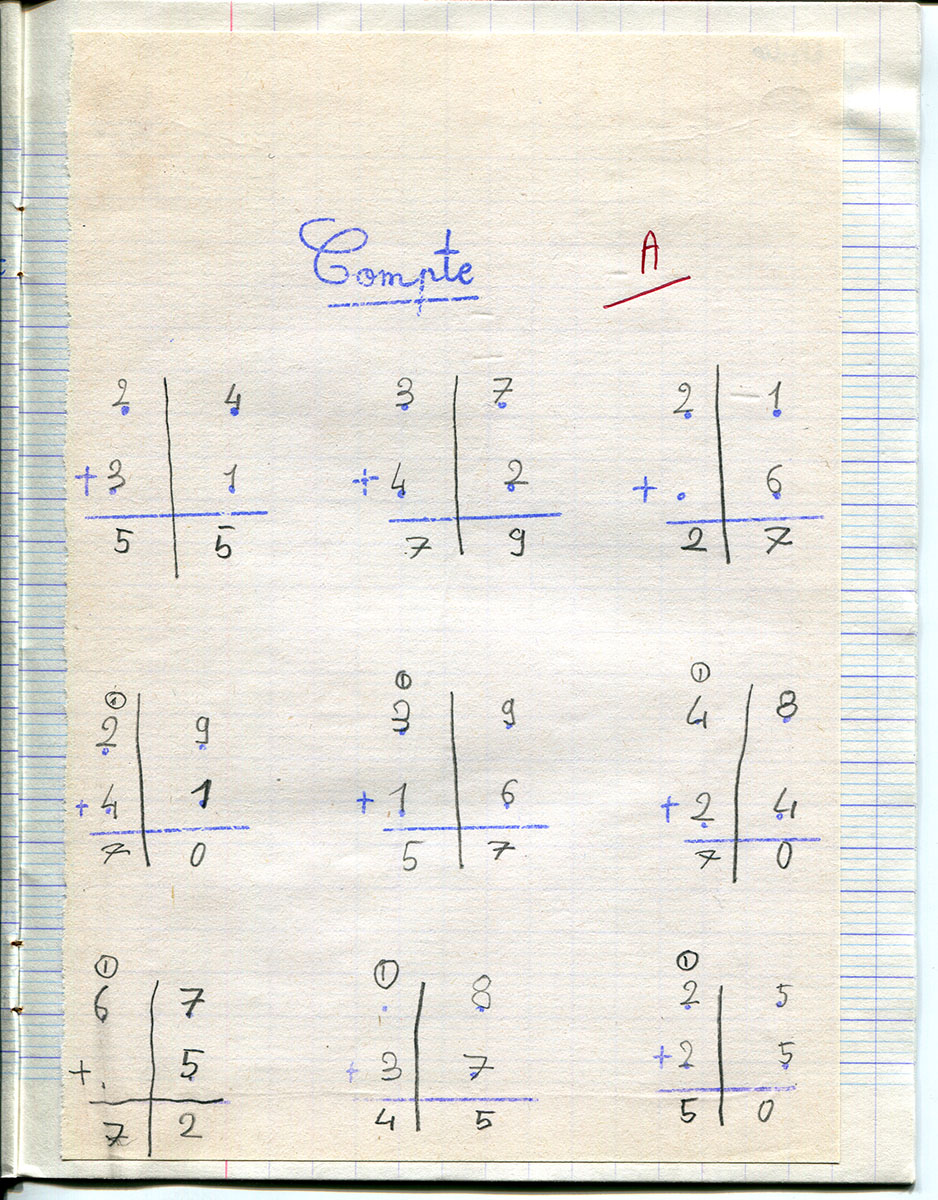 Compte A
2 4 3 7 2 1
+ 3 1 + 4 2 + . 6
5 5 7 9 2 7
① ① ①
2 9 3 9 4 8
+ 4 1 + 1 6 + 2 4
7 0 5 7 7 0
① ① ①
6 7 . 8 2 5
+ . 5 + 3 7 + 2 5
7 2 4 5 5 0